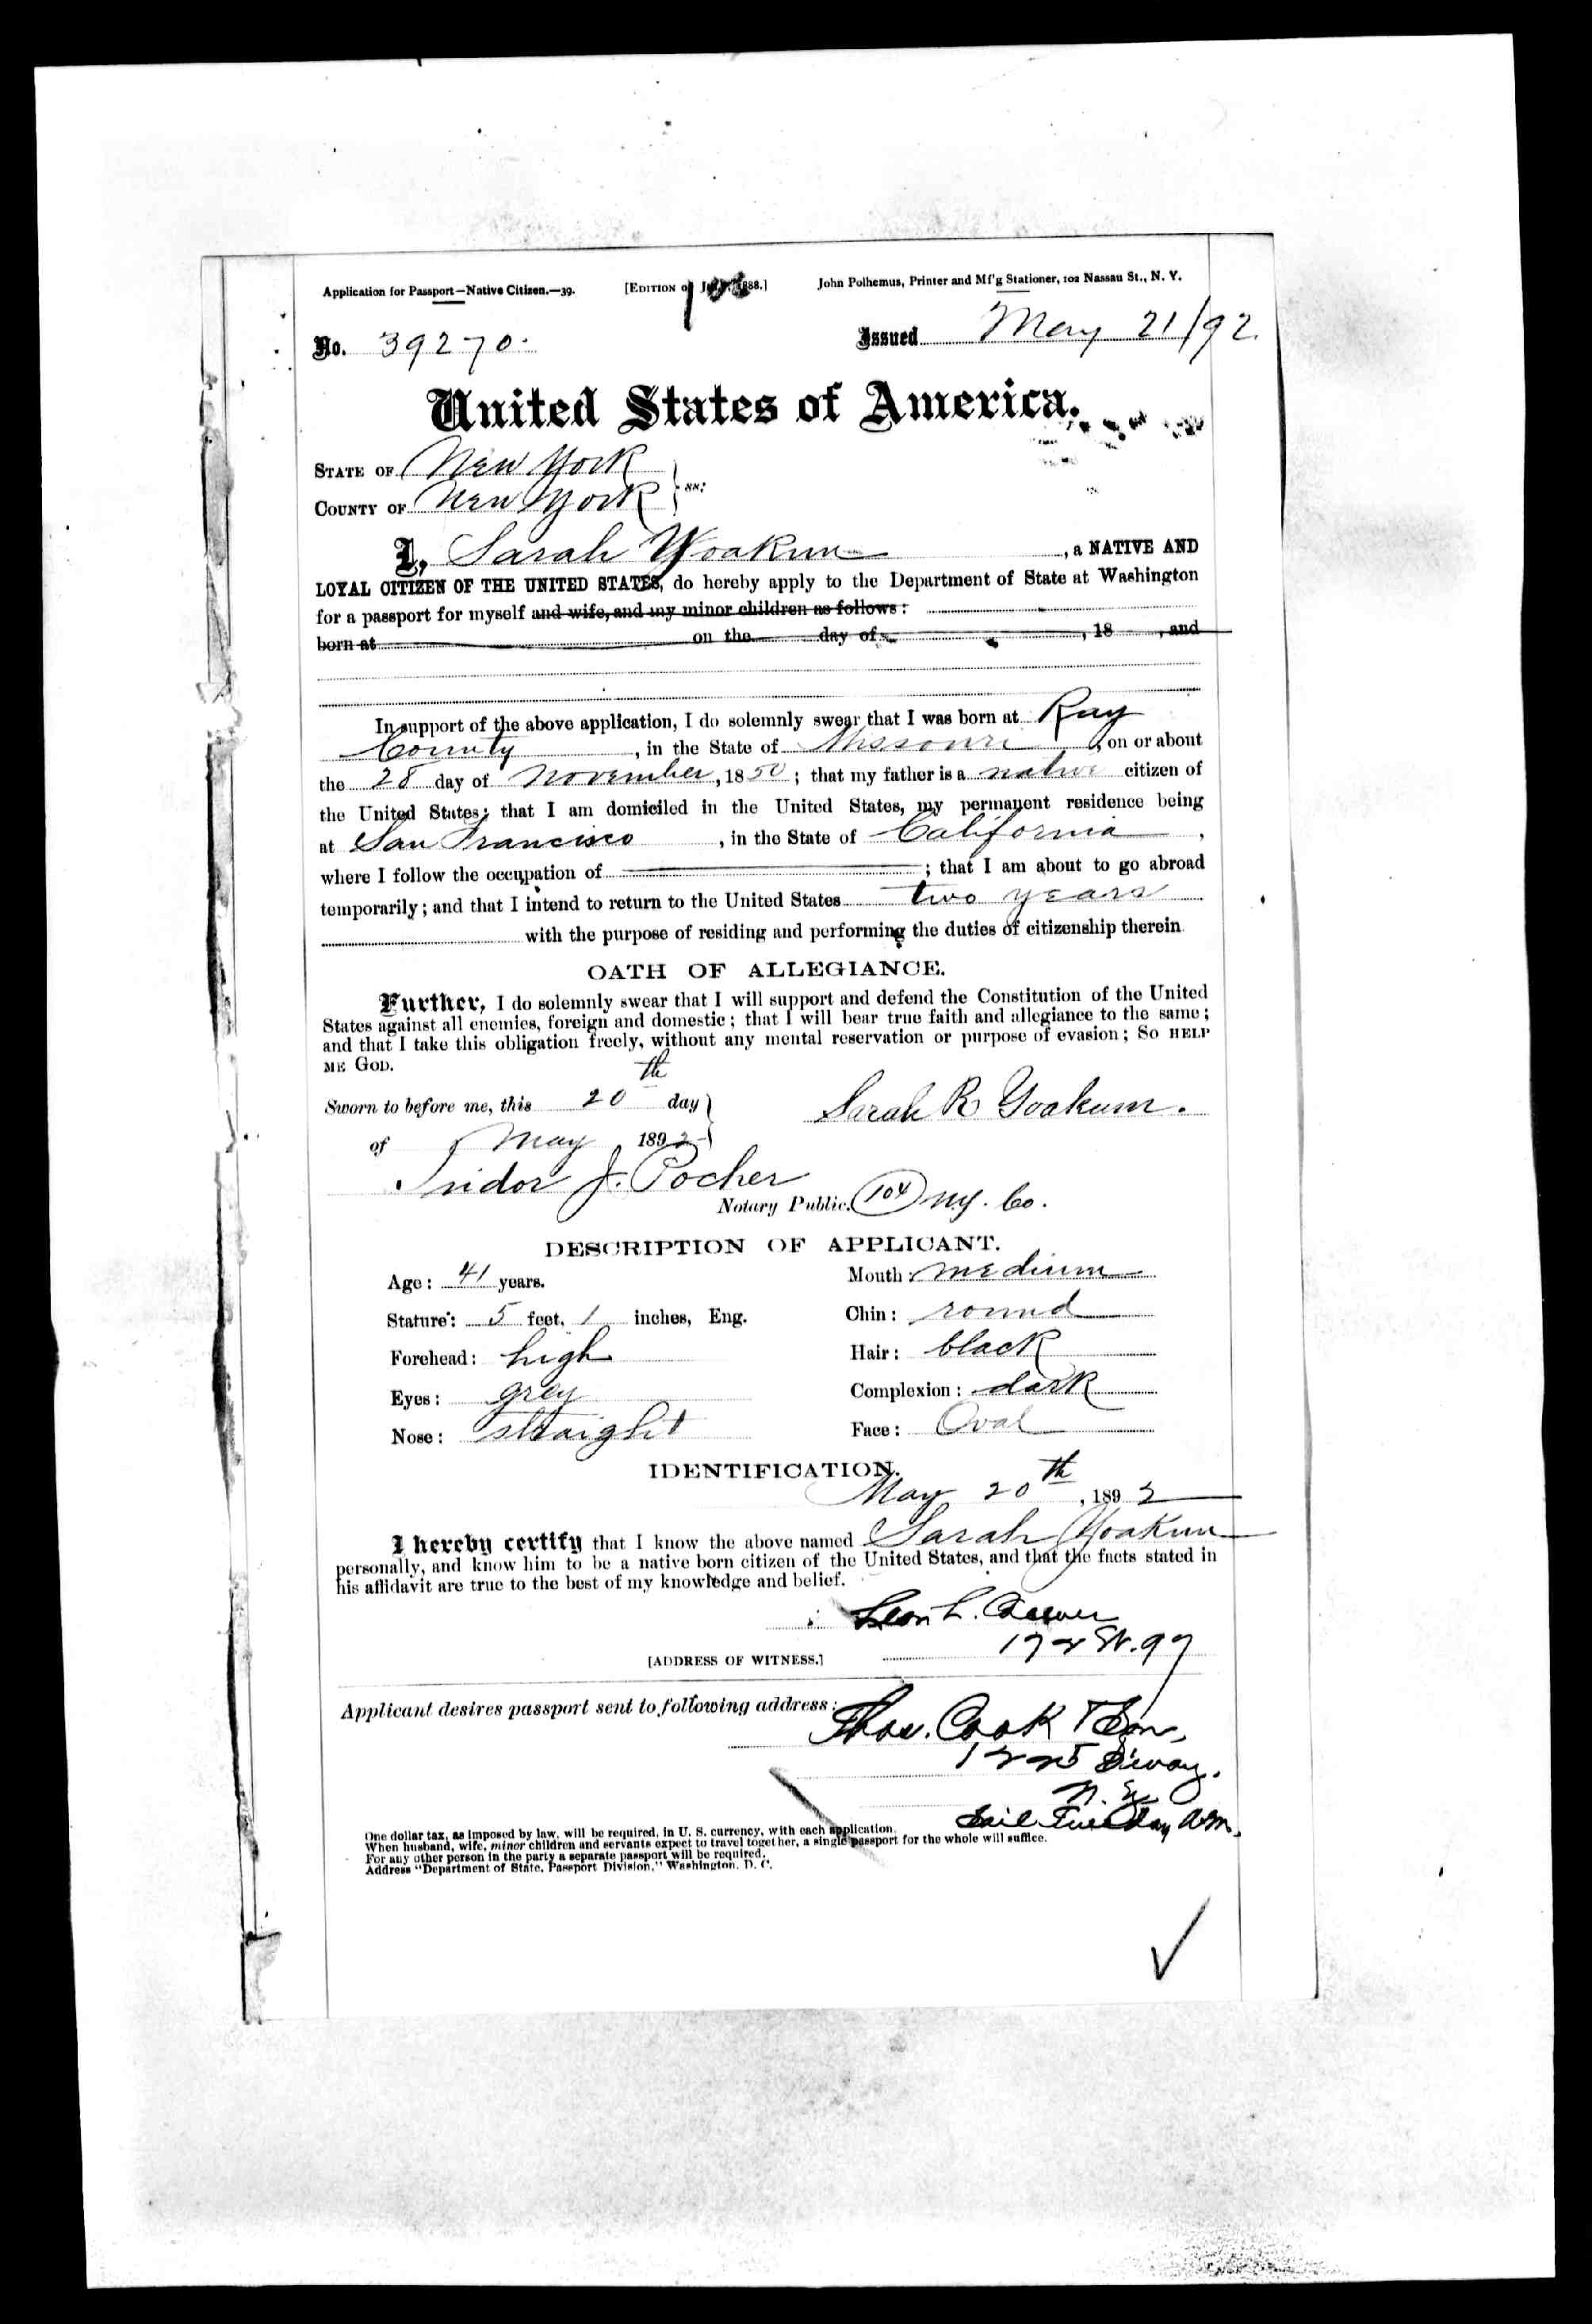 Application for Passport—Native Citizen.—39. [EDITION of 1888.] John Polhemus, Printer and Mf'g Stationer, 102 Nassau St., N. Y.
No. 39270. Issued May 21/92.
United States of America.
STATE OF New York
COUNTY OF New York } ss:
I, Sarah Yoakum, a NATIVE AND
LOYAL CITIZEN OF THE UNITED STATES, do hereby apply to the Department of State at Washington
for a passport for myself and wife, and my minor children as follows:
born at on the day of , 18 , and
In support of the above application, I do solemnly swear that I was born at Ray
County, in the State of Missouri, on or about
the 28 day of November, 1850; that my father is a native citizen of
the United States; that I am domiciled in the United States, my permanent residence being
at San Francisco, in the State of California,
where I follow the occupation of ; that I am about to go abroad
temporarily; and that I intend to return to the United States two years
with the purpose of residing and performing the duties of citizenship therein.
OATH OF ALLEGIANCE.
Further, I do solemnly swear that I will support and defend the Constitution of the United
States against all enemies, foreign and domestic; that I will bear true faith and allegiance to the same;
and that I take this obligation freely, without any mental reservation or purpose of evasion; SO HELP
ME GOD.
Sworn to before me, this 20th day } Sarah R Yoakum.
of May 1892
Isidor J. Pocher
Notary Public. (104) N.Y. Co.
DESCRIPTION OF APPLICANT.
Age: 41 years. Mouth: medium
Stature: 5 feet, 1 inches, Eng. Chin: round
Forehead: high Hair: black
Eyes: grey Complexion: dark
Nose: straight Face: Oval
IDENTIFICATION.
May 20th, 1892
I hereby certify that I know the above named Sarah Yoakum
personally, and know him to be a native born citizen of the United States, and that the facts stated in
his affidavit are true to the best of my knowledge and belief.
Leon L.
172 W. 97
[ADDRESS OF WITNESS.]
Applicant desires passport sent to following address: Thos. Cook & Son,
1225 B'way.
N.Y.
Sail Tuesday
One dollar tax, as imposed by law, will be required, in U. S. currency, with each application.
When husband, wife, minor children and servants expect to travel together, a single passport for the whole will suffice.
For any other person in the party a separate passport will be required.
Address "Department of State, Passport Division," Washington, D. C.